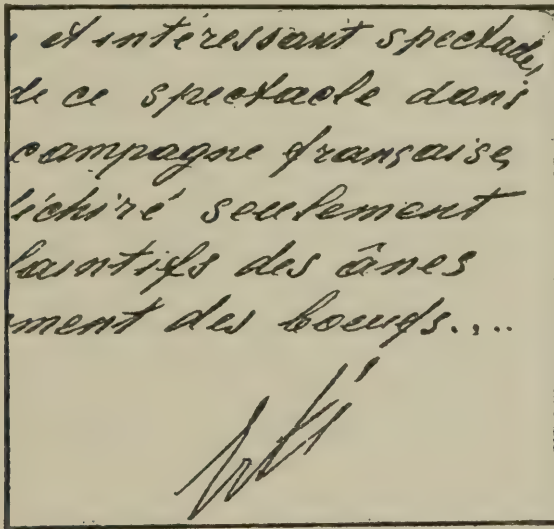 et intéressant spectacle,
de ce spectacle dans
campagne française,
déchiré seulement
laintifs des ânes
ment des boeufs....